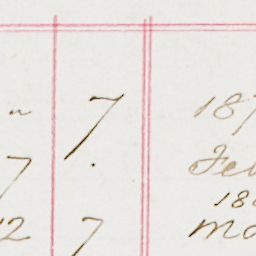 " 7 187
7 . Feb
18
12 7 Ma